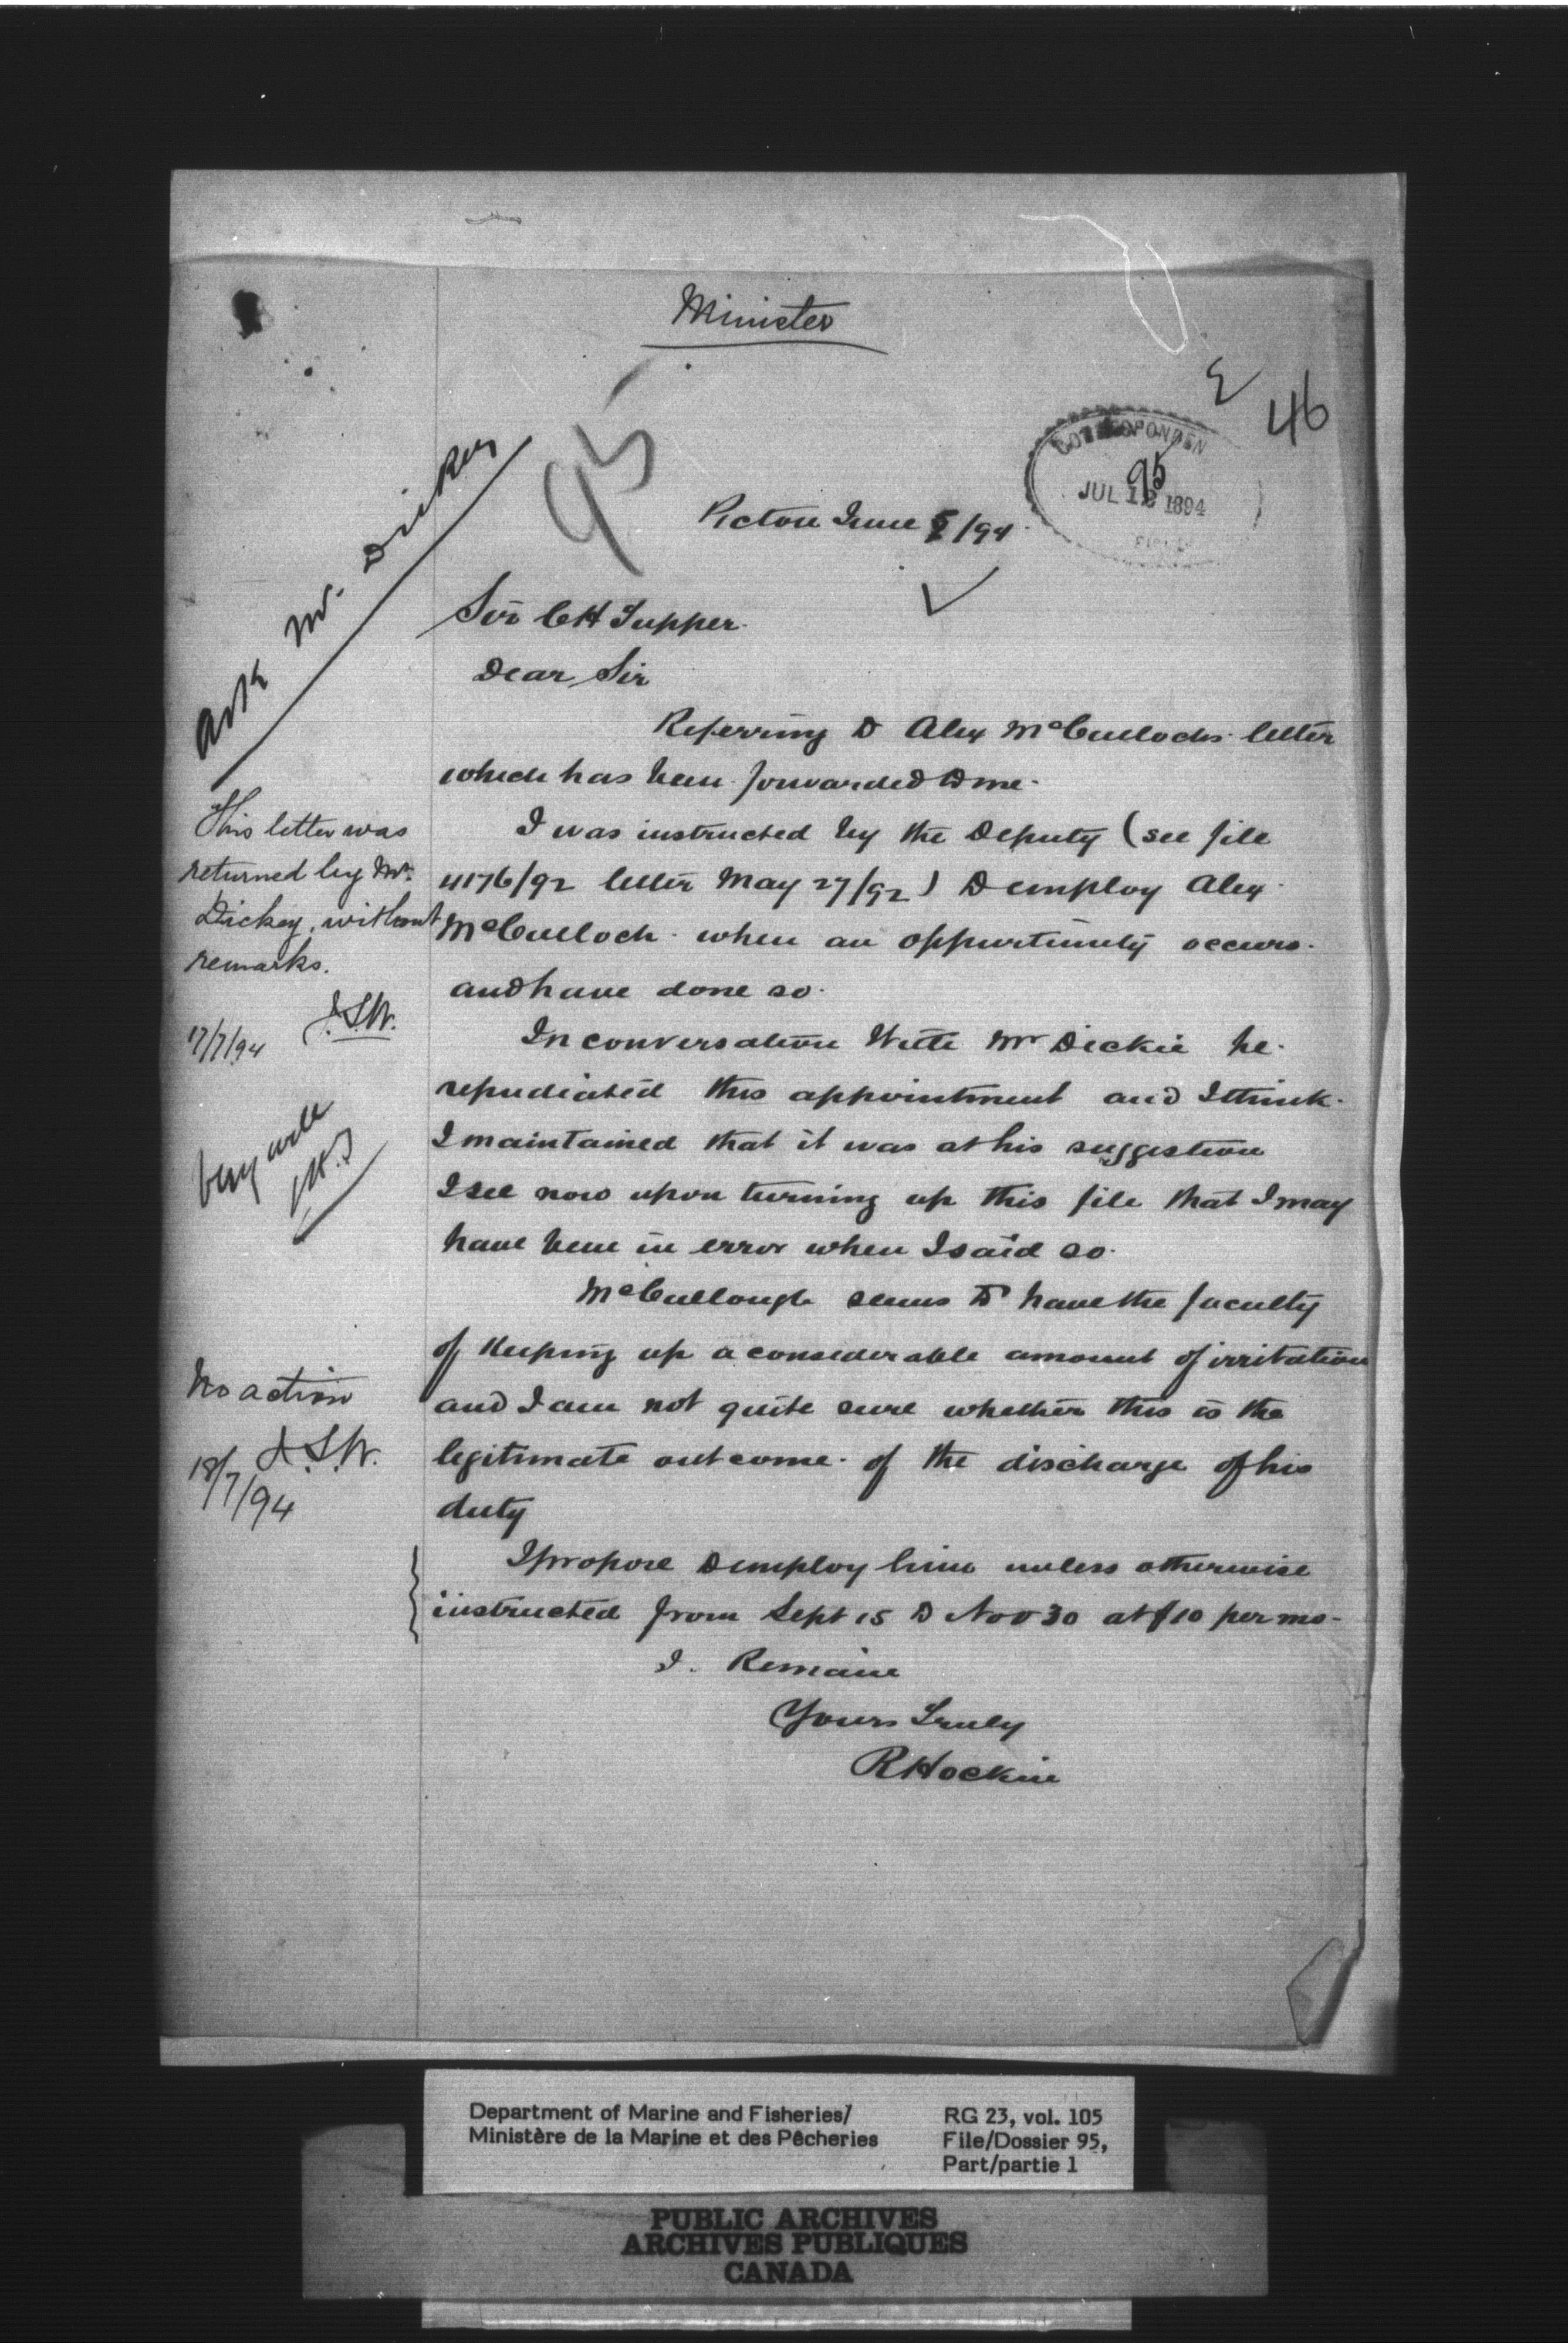 Minister
46
95
CORRESPONDEN
95
JUL 12 1894
Pictou June 5/94
Sir C H Tupper
Dear Sir
Referring to Alex McCullochs letter
which has been forwarded to me.
I was instructed by the Deputy (see file
4176/92 letter May 27/92) to employ Alex
McCulloch when an oppurtunity occurs.
and have done so.
In conversation With Mr Dickie he
repudiated this appointment and I think
I maintained that it was at his suggestion
I see now upon turning up this file that I may
have been in error when I said so.
McCullough seems to have the faculty
of keeping up a considerable amount of irritation
and I am not quite sure whether this is the
legitimate outcome of the discharge of his
duty
I propose to employ him unless otherwise
instructed from Sept 15 to Nov 30 at $10 per mo-
I Remain
Yours Truly
R Hockin
Ask Mr. Dickey
This letter was
returned by Mr.
Dickey, without
remarks.
J.S.W.
17/7/94
Very well
No action
J.S.W.
18/7/94
Department of Marine and Fisheries/
Ministère de la Marine et des Pêcheries
RG 23, vol. 105
File/Dossier 95,
Part/partie 1
PUBLIC ARCHIVES
ARCHIVES PUBLIQUES
CANADA